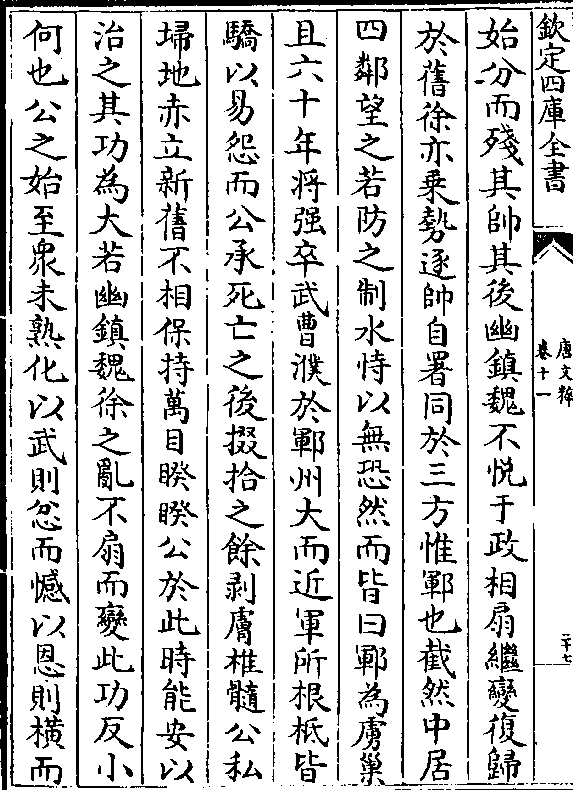 欽定四庫全書
唐文粹
卷十一
二十七
始分而殘其帥其後幽鎮魏不悦于政相扇繼變復歸
於舊徐亦乗勢逐帥自署同於三方惟鄆也截然中居
四鄰望之若防之制水恃以無恐然而皆曰鄆為虜巢
且六十年將强卒武曹濮於鄆州大而近軍所根柢皆
驕以易怨而公承死亡之後掇拾之餘剥膚椎髓公私
埽地赤立新舊不相保持萬目睽睽公於此時能安以
治之其功為大若幽鎮魏徐之亂不扇而變此功反小
何也公之始至衆未熟化以武則忿而憾以恩則横而